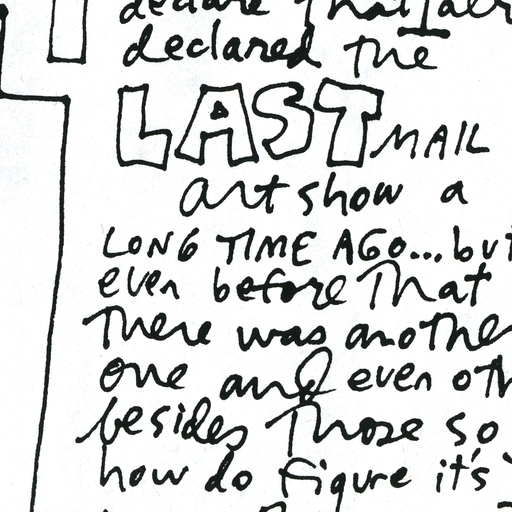 declare that I alr
declared the
LAST MAIL
art show a
LONG TIME AGO...but
even before That
There was another
one and even oth
besides Those so
how do figure it's